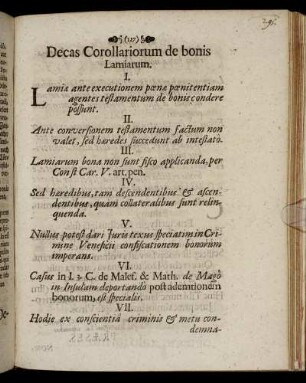 Decas Corollariorum de bonis
Lamiarum.
I.
Lamia ante executionem pœnæ pœnitentiam
agentes testamentum de bonis condere
possunt.
II.
Ante conversionem testamentum factum non
valet, sed hæredes succedunt ab intestato.
III.
Lamiarum bona non sunt fisco applicanda, per
Const Car. V. art. pen.
IV.
Sed hæredibus, tam descendentibus & ascen-
dentibus, quam collateralibus sunt relin-
quenda.
V.
Nullus potest dari Juris textus specialis in Cri-
mine Veneficii confiscationem bonorum
imperans.
VI.
Casus in l. C. de Malef. & Math. de Mago
in Insulam deportando post ademtionem
bonorum, est specialis.
VII.
Hodie ex conscientiâ criminis & metu con-
demna-